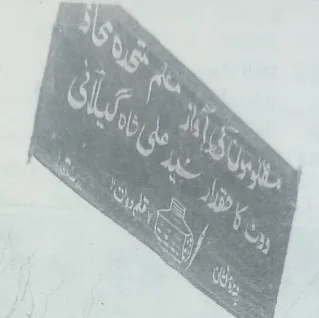 مظلوموں کی آواز مسلم متحدہ محاذ
ووٹ کا حقدار سید علی شاہ گیلانی
قلم دوات